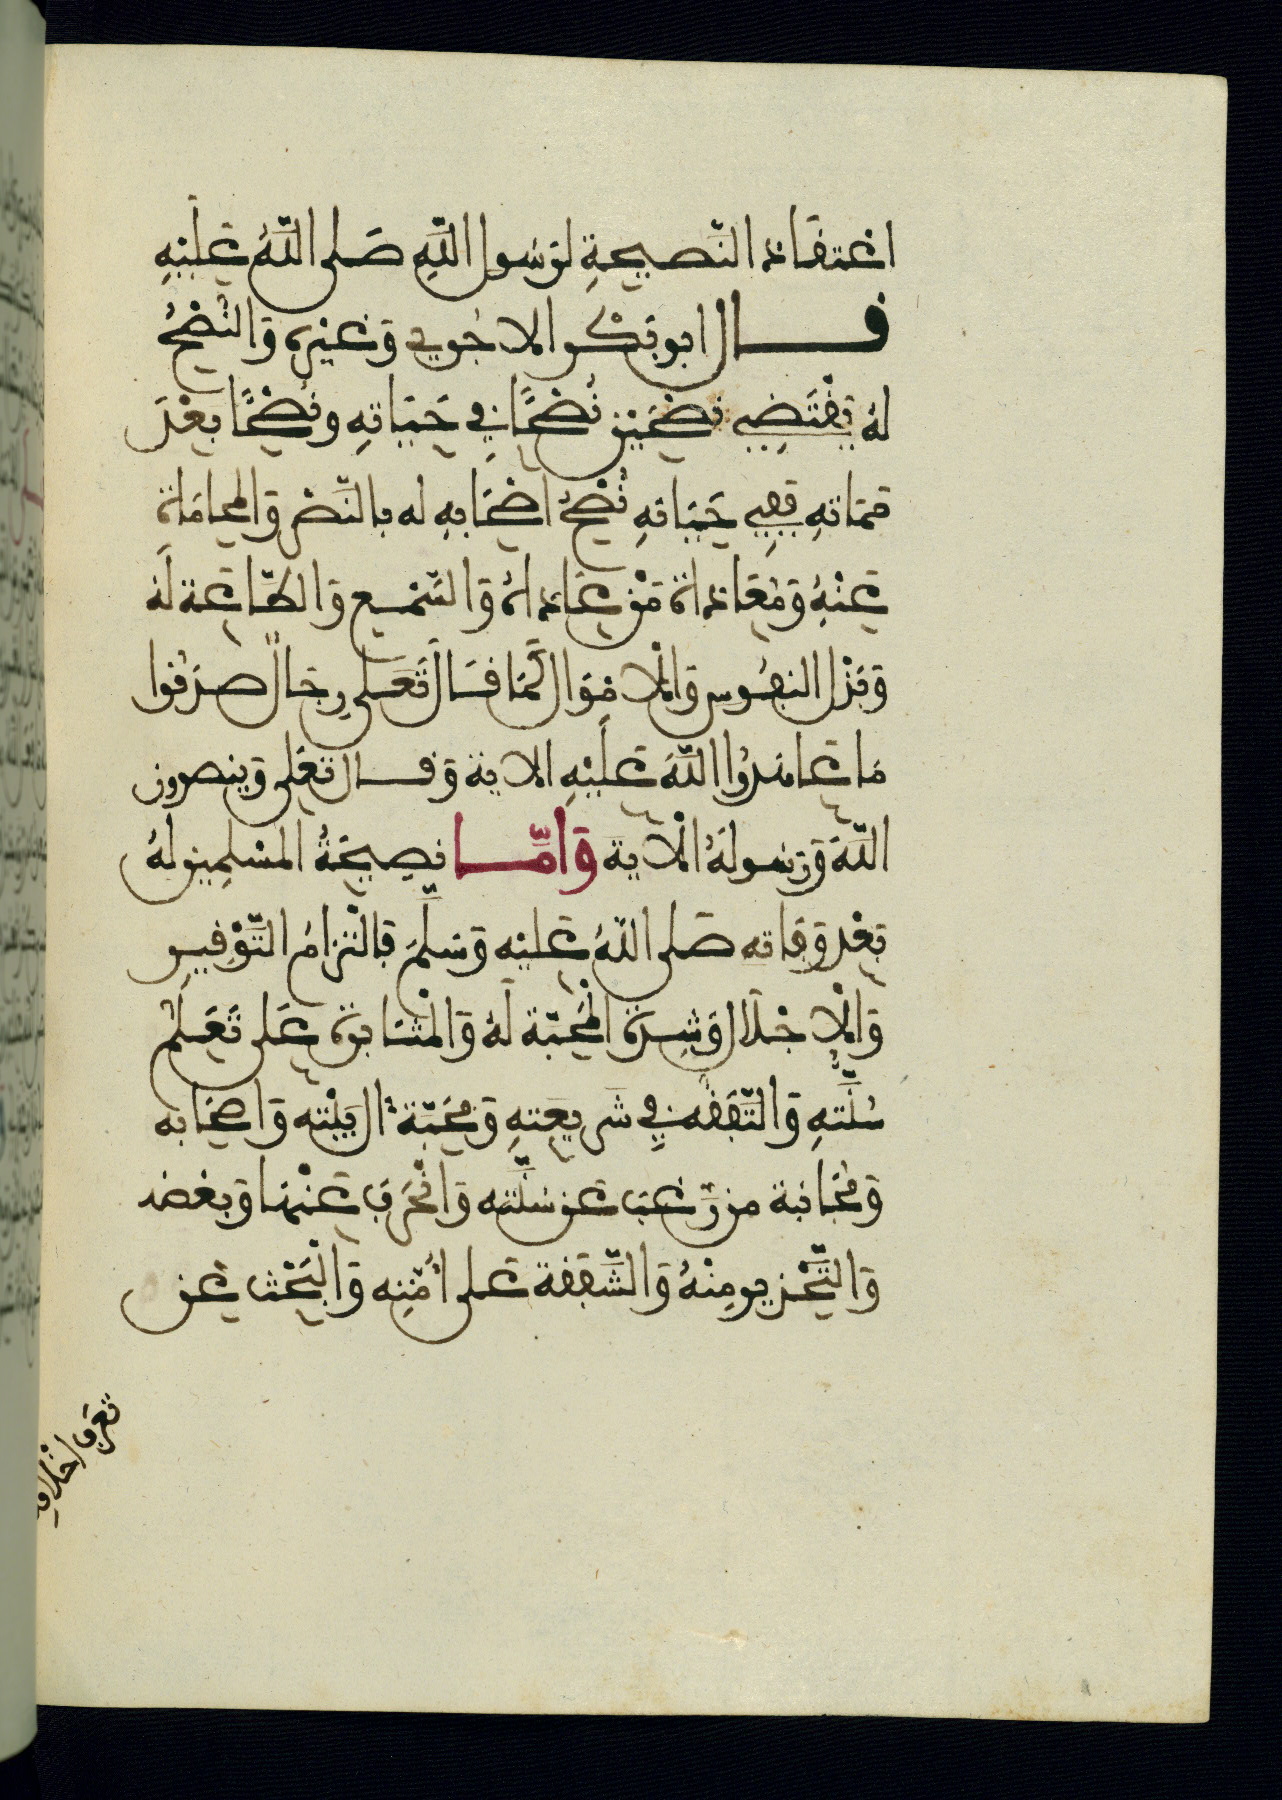 اعتقاد النَّصيحةِ لرسُولِ اللَّهِ صَلى اللَّهُ عَلَيْهِ
قال ابو بَكر الاجُري وَغيرُه وَالنُّصْحُ
لهُ يَقْتَضِي نُصْحَيْنِ نُصْحًا فِي حَيَاتِهِ ونُصْحًا بَعْدَ
مَمَاتهِ فَفِي حَيَاتِهِ نُصْحُ اصْحَابِهِ له بالنَّصْر وَالمحامَاة
عَنْهُ وَمُعَاداة مَنْ عَاداهُ وَالسَّمْع وَالطَّاعَة لَهُ
وَبَذْل النفُوس وَالْامْوَال كَمَا قَالَ تَعَلى رِجَالٌ صَدَقُوا
مَا عَاهَدُوا اللَّهَ عَلَيْهِ الاية وَقال تعَلى وَينصرون
اللَّهَ وَرَسُولَهُ الْاية وَأمَّا نصِيحَةُ المسْلِمِين لهُ
بَعْد وَفاته صَلى اللهُ عَليْه وَسَلَّمَ فَالْتزَامُ التَّوْقِير
وَالْإجْلَال وَشِدّة المحَبّة لَهُ وَالْمُثَابرة عَلى تَعَلُّم
سُنَّتهِ وَالتَّفَقُّه فِي شَريعَتهِ وَمحَبّة ءال بَيْته وَاصْحَابه
وَمُجَانبة من رَّغبَ عَن سُنَّته وَانْحَرَفَ عَنْهَا وَبغضه
وَالتَّحْذير مِنْهُ وَالشَّفَقة عَلى أُمَّتِه وَالْبَحْث عَن
تعَرف اخْلاقِه